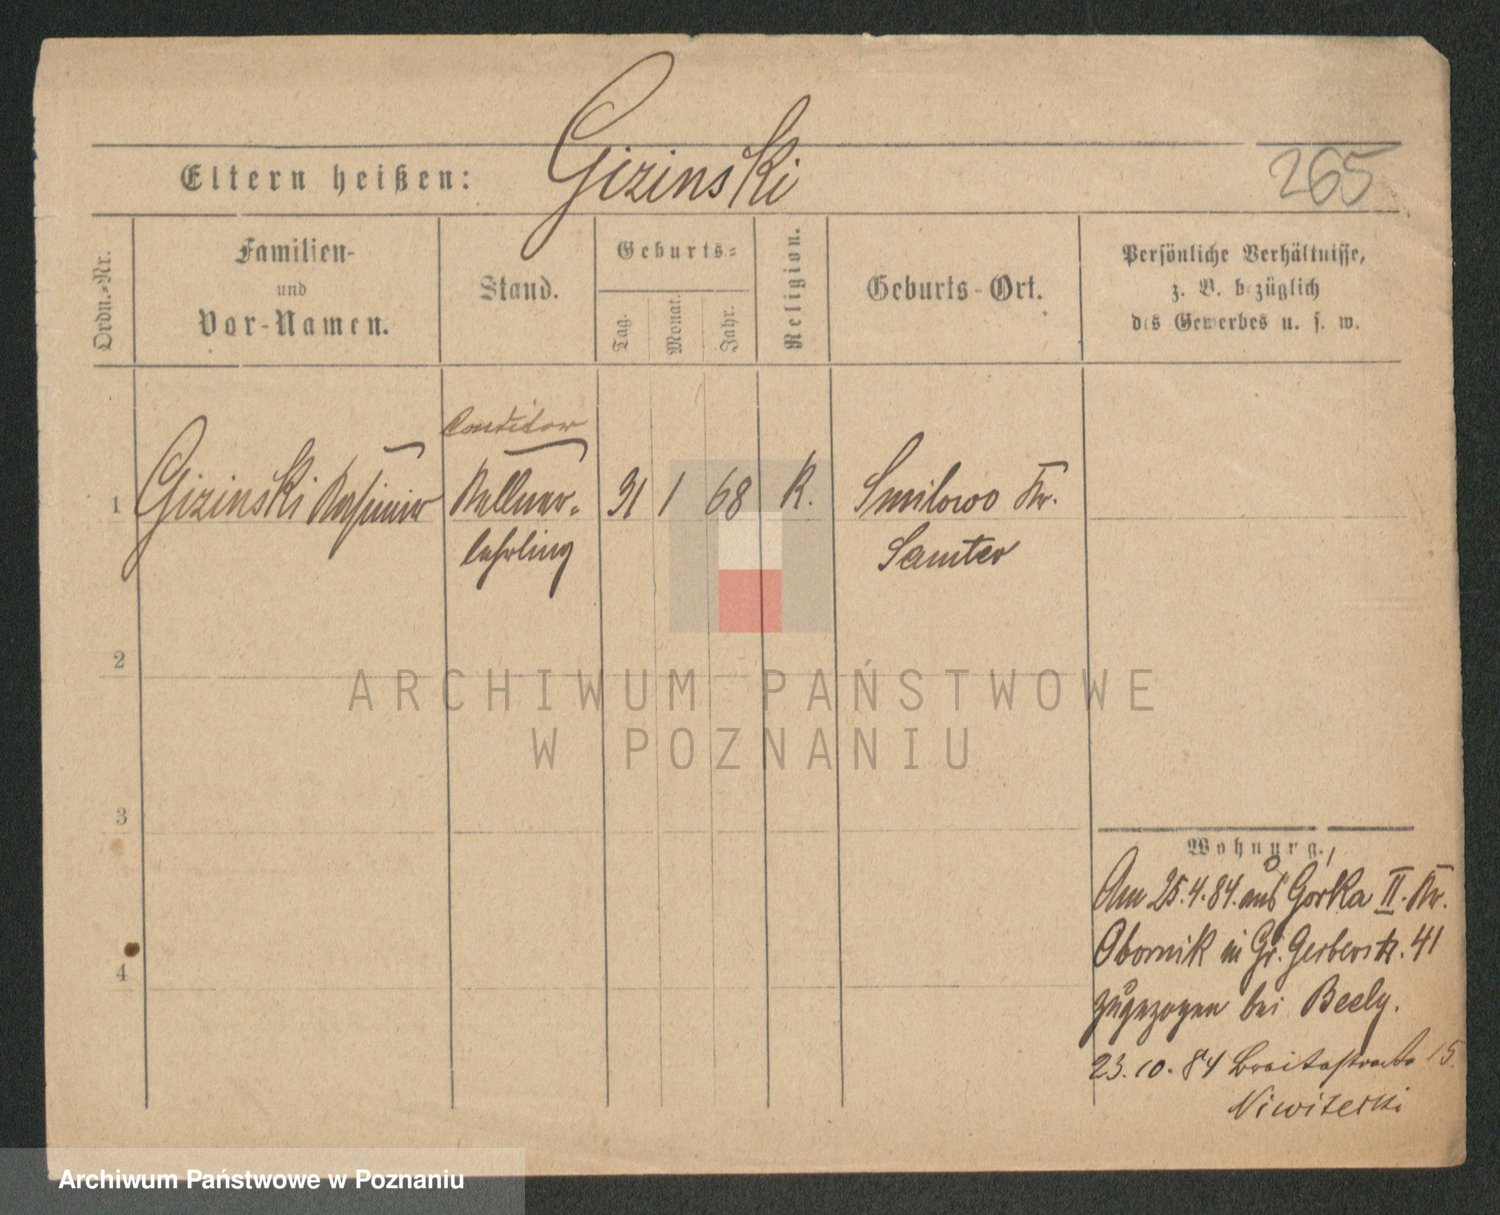 Gizinski
Eltern heißen:
265
Ordn.-Nr.
Familien-
und
Vor-Namen.
Stand.
Geburts-
Tag.
Monat.
Jahr.
Religion.
Geburts-Ort.
Persönliche Verhältnisse,
z. B. bezüglich
des Gewerbes u. s. w.
Conditor
1 Gizinski Kasimir Kellner- 31 1 68 K. Smilowo Kr.
lehrling Samter
2
ARCHIWUM PAŃSTWOWE
W POZNANIU
3
Wohnung.
Am 25.4.84. aus Górka II. Kr.
Obornik in Gr. Gerberstr. 41
4
zugezogen bei Beely.
23.10.84 Breitestraße 15.
Archiwum Państwowe w Poznaniu